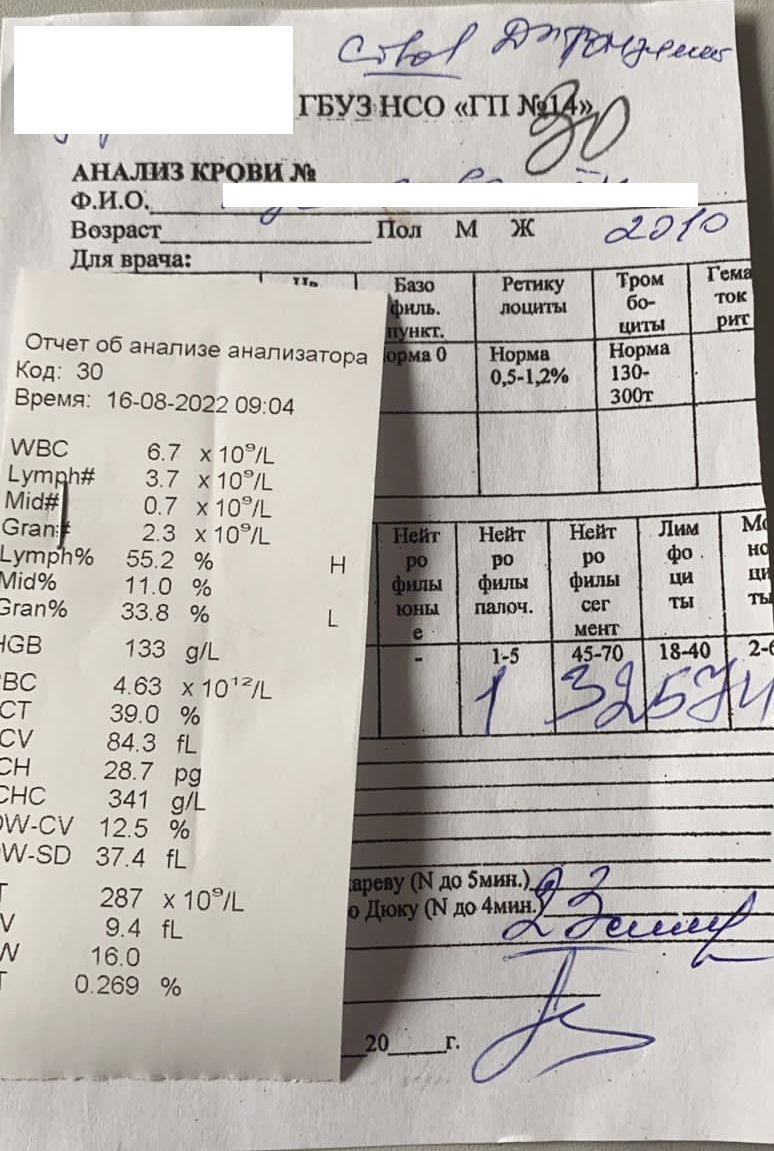 ГБУЗ НСО «ГП №14»
30
АНАЛИЗ КРОВИ №
Ф.И.О.
Возраст Пол М Ж 2010
Для врача:
Базо филь. пункт.
Ретику лоциты
Тром бо- циты
Гема ток рит
орма 0
Норма 0,5-1,2%
Норма 130- 300т
Отчет об анализе анализатора
Код: 30
Время: 16-08-2022 09:04
WBC 6.7 x 10⁹/L
Lymph# 3.7 x 10⁹/L
Mid# 0.7 x 10⁹/L
Gran# 2.3 x 10⁹/L
Lymph% 55.2 % H
Mid% 11.0 %
Gran% 33.8 % L
HGB 133 g/L
BC 4.63 x 10¹²/L
CT 39.0 %
CV 84.3 fL
CH 28.7 pg
CHC 341 g/L
DW-CV 12.5 %
W-SD 37.4 fL
T 287 x 10⁹/L
V 9.4 fL
W 16.0
T 0.269 %
Нейт ро филы юны е
Нейт ро филы палоч.
Нейт ро филы сег мент
Лим фо ци ты
Мо но ци ты
- 1-5 45-70 18-40 2-6
1 32 57
кареву (N до 5мин.)
о Дюку (N до 4мин.)
23
20 г.